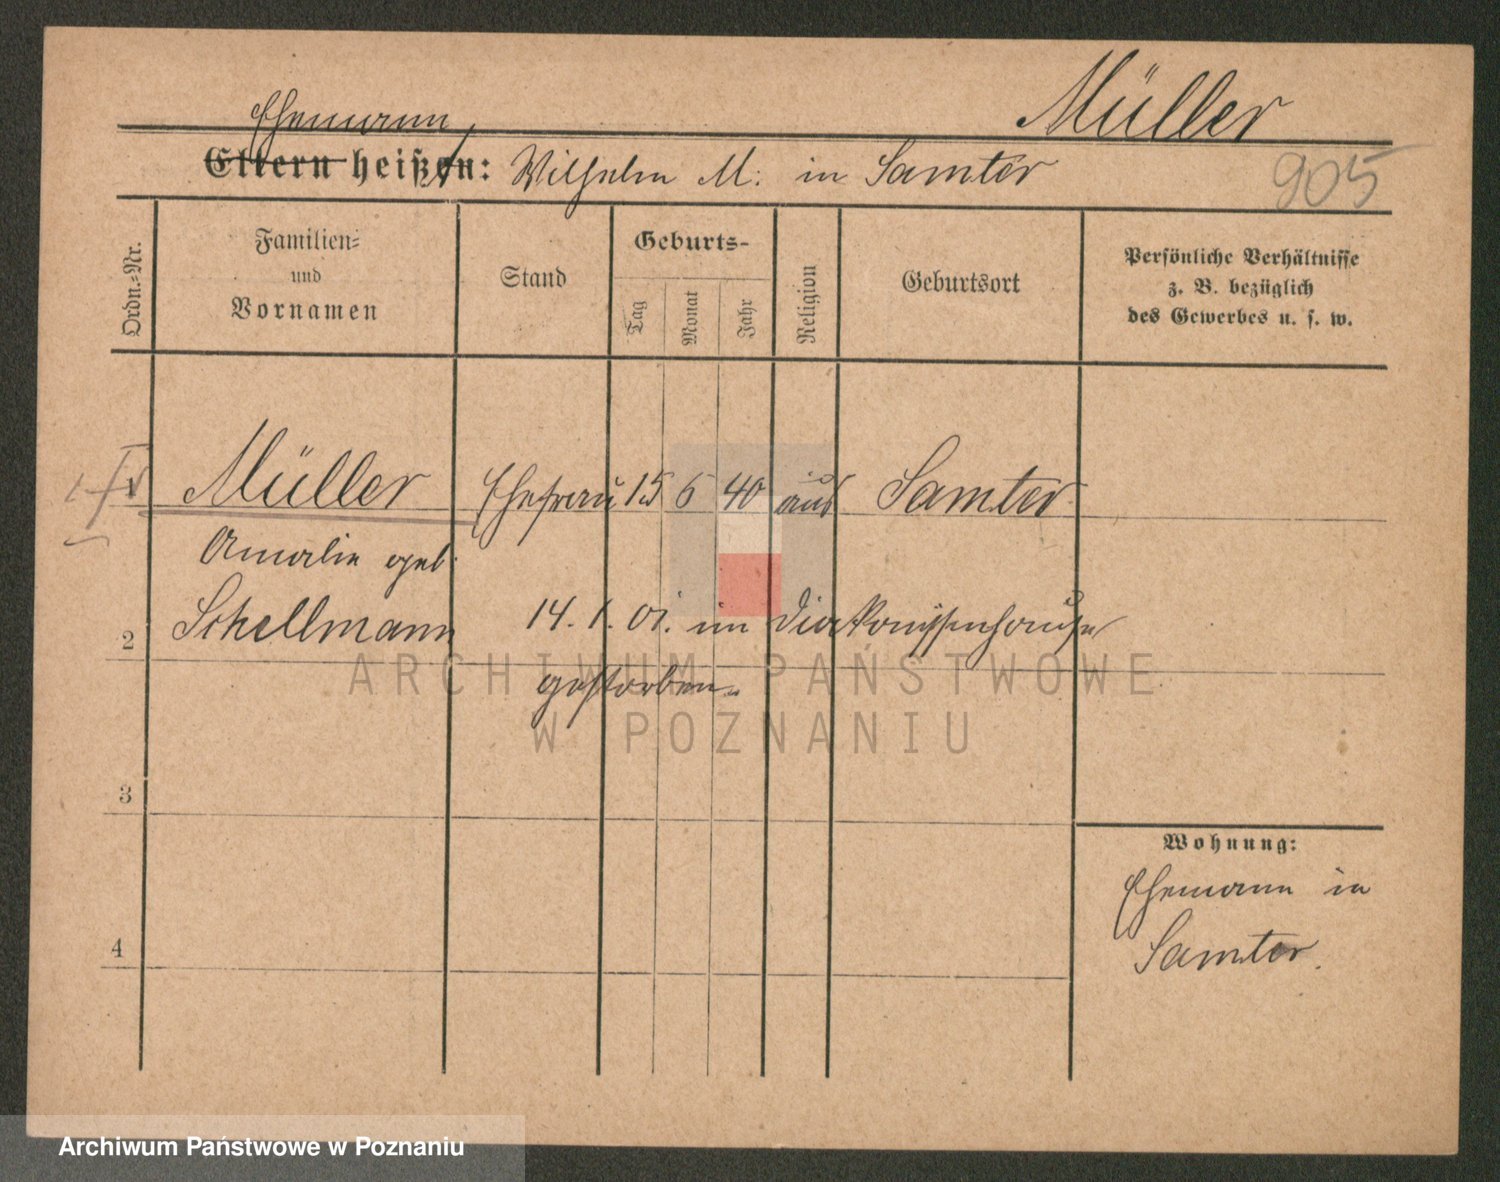 Müller
Ehemann
Eltern heißen: Wilhelm M. in Samter
905
Ordn.-Nr.
Familien-
und
Vornamen
Stand
Geburts-
Tag
Monat
Jahr
Religion
Geburtsort
Persönliche Verhältnisse
z. B. bezüglich
des Gewerbes u. s. w.
Müller Ehefrau 15 6 40 aus Samter
Amalie geb.
2 Schellmann 14. 1. 01. im Diakonissenhause
gestorben.
ARCHIWUM PAŃSTWOWE
W POZNANIU
3
Wohnung:
Ehemann in
4 Samter.
Archiwum Państwowe w Poznaniu